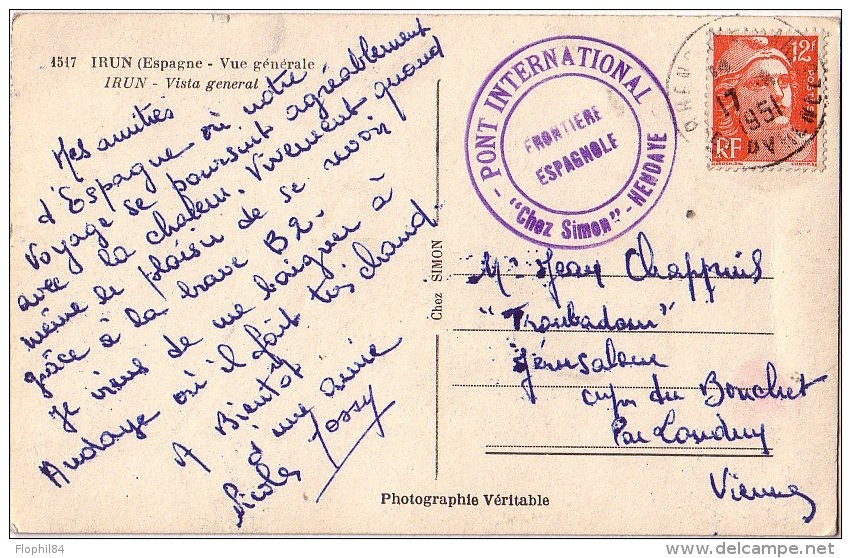 1517 IRUN (Espagne - Vue générale
IRUN - Vista general
Mes amitiés
d'Espagne où notre
voyage se poursuit agréablement
avec la chaleur. Vivement quand
même le plaisir de se revoir
grâce à la brave B2.
je viens de me baigner à
Andaye où il fait très chaud.
A Bientôt
d'une amie
Nicole Jossy
Chez SIMON
- PONT INTERNATIONAL -
FRONTIERE
ESPAGNOLE
"Chez Simon" - HENDAYE
12F
17
1951
RF
Mr Jean Chappuis
"Troubadour"
Jérusalem
du Bouchet
Par Loudun
Vienne
Photographie Véritable
Flophil84
delcampe.net